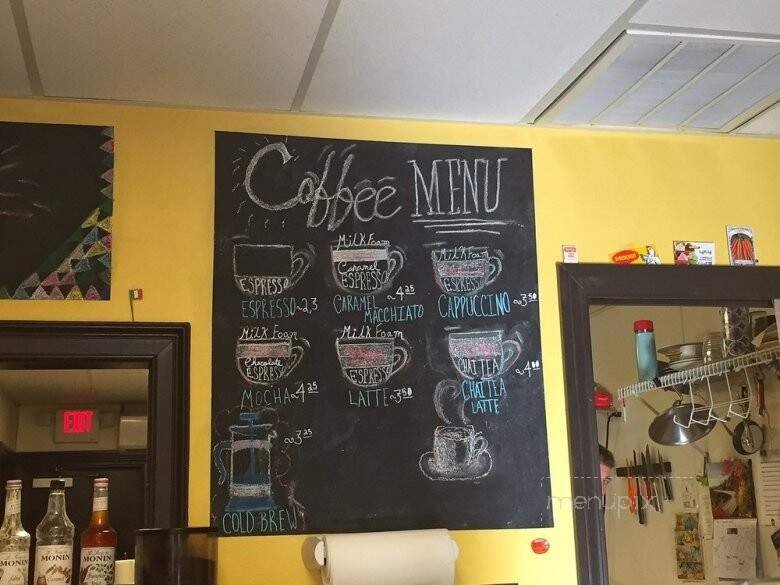 Coffee MENU
ESPRESSO
ESPRESSO ~2,3
MilK Foam
Caramel
ESPRESSO
CARAMEL MACCHIATO ~4.25
MilK Foam
ESPRESSO
CAPPUCCINO ~3.50
MilK Foam
Chocolate
ESPRESSO
MOCHA ~4.25
MilK Foam
ESPRESSO
LATTE ~3.50
CHAI TEA
CHAI TEA
LATTE
~4.00
~3.25
COLD BREW
EXIT
MONIN
MONIN
MONIN
menupix